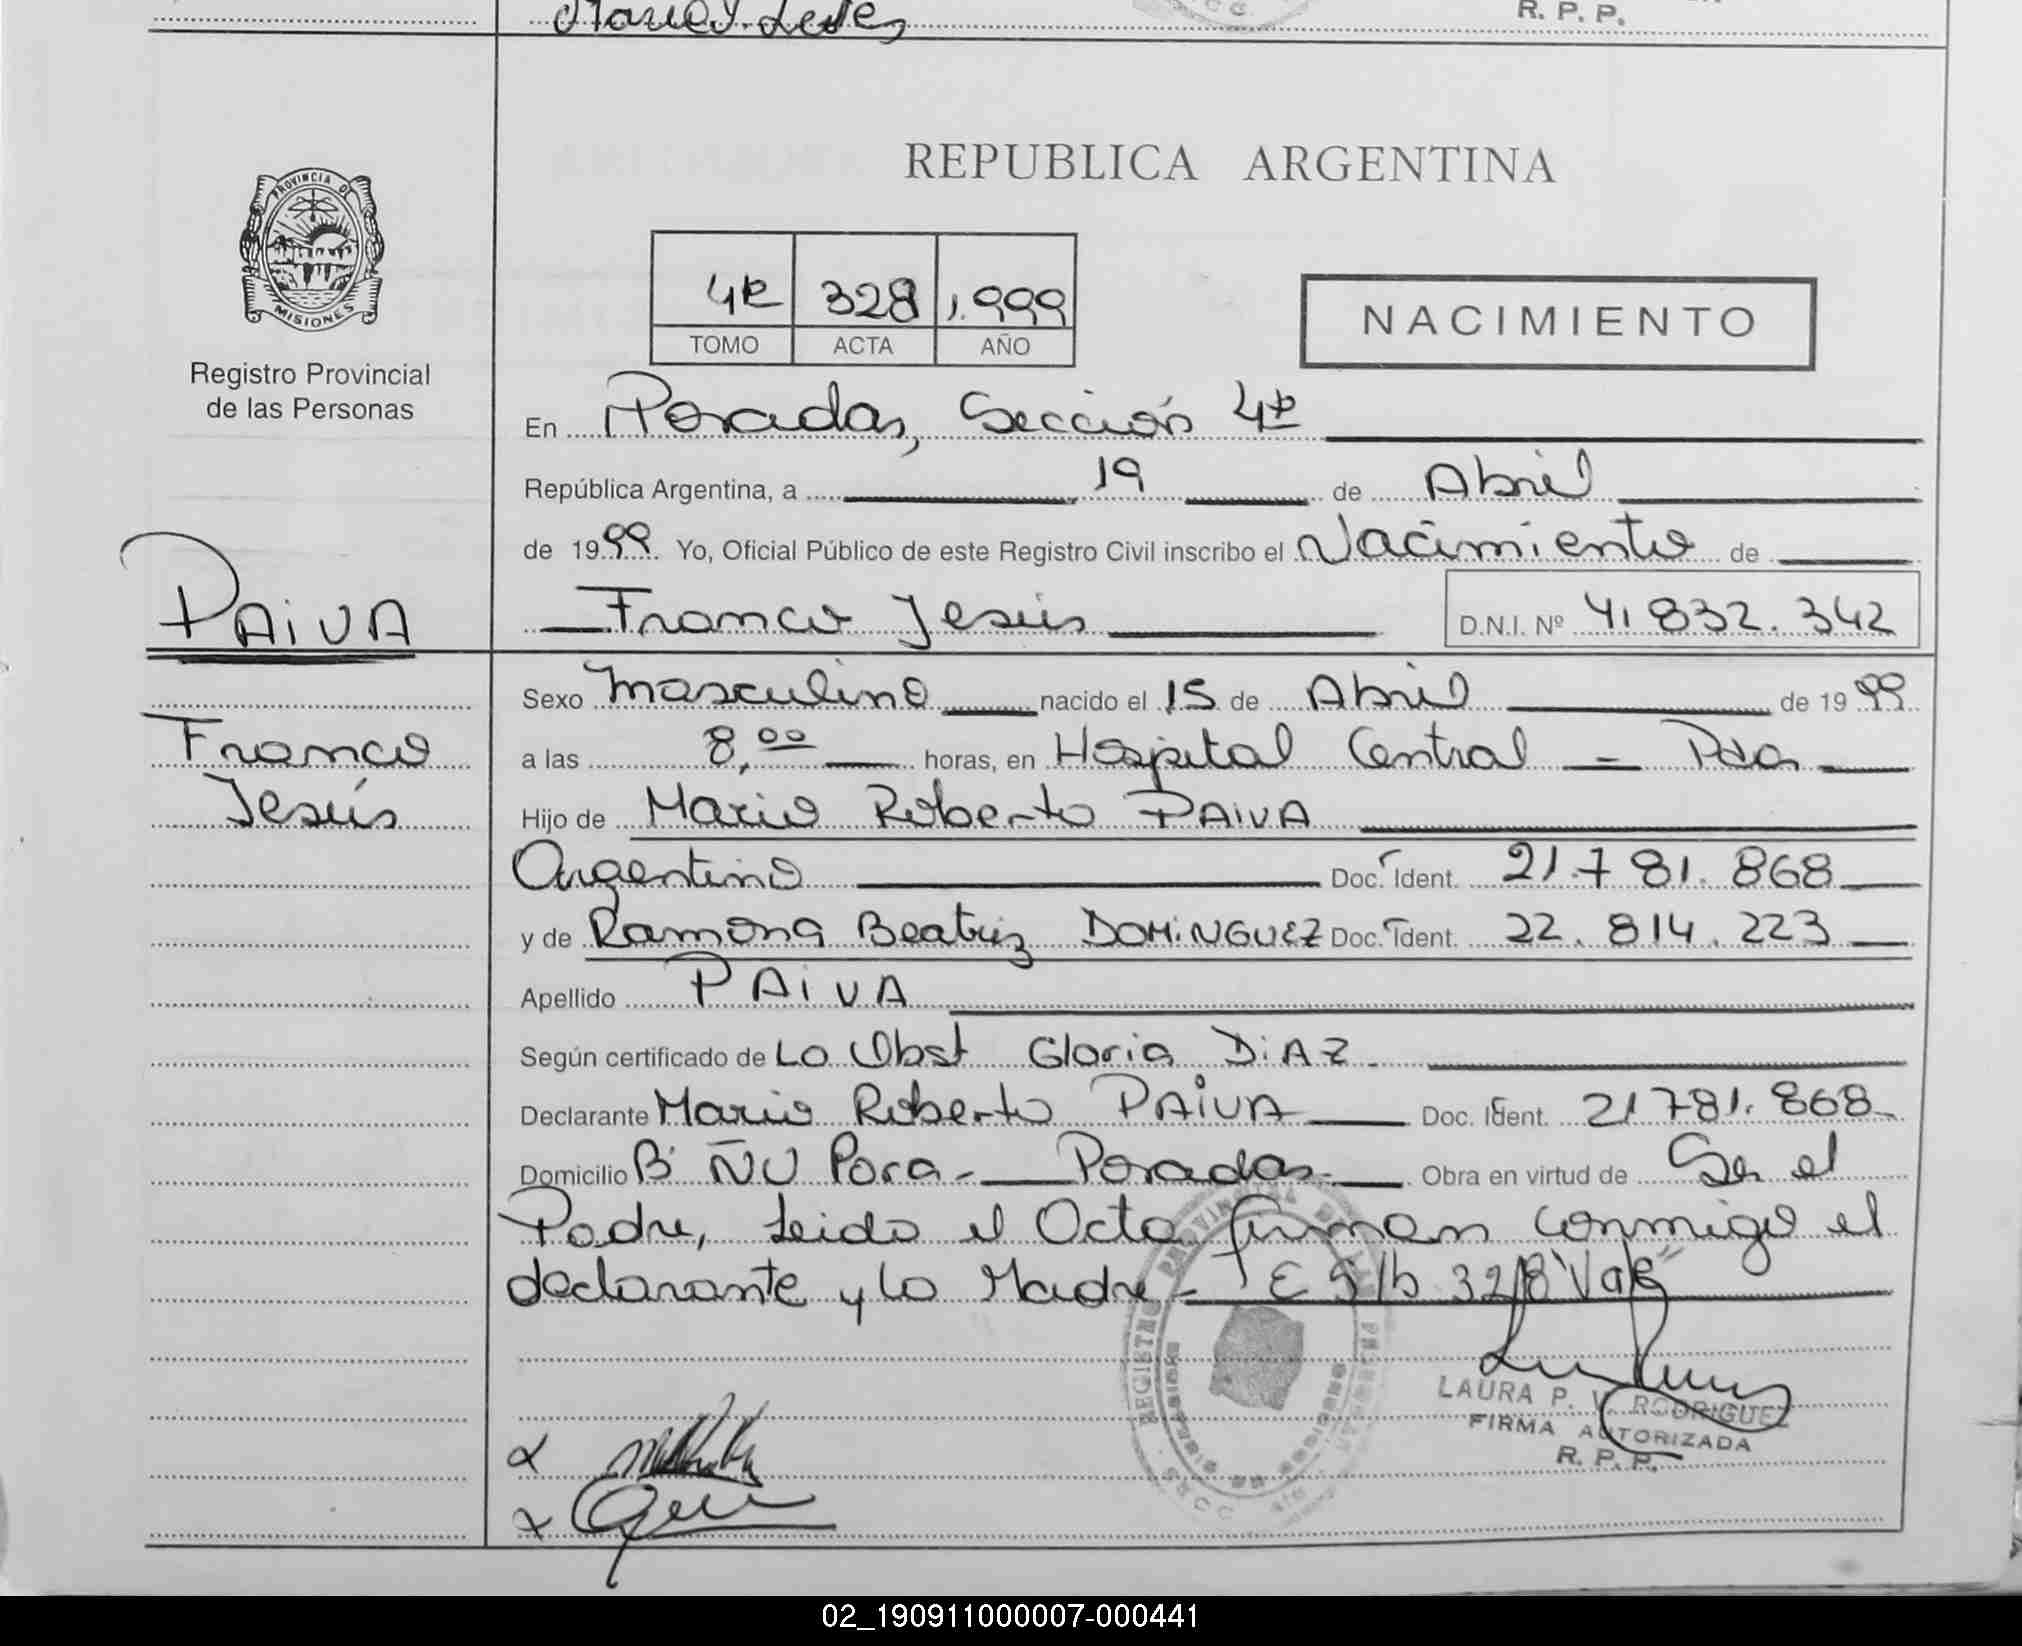 R. P. P.
PROVINCIA DE
MISIONES
Registro Provincial
de las Personas
REPUBLICA ARGENTINA
4ª 328 1.999
TOMO ACTA AÑO
NACIMIENTO
En Posadas, Sección 4ª
República Argentina, a 19 de Abril
de 1999 Yo, Oficial Público de este Registro Civil inscribo el Nacimiento de
PAIVA
Franco Jesús D.N.I. Nº 41 832. 342
Sexo Masculino nacido el 15 de Abril de 1999
Franco
Jesús
a las 8,00 horas, en Hospital Central - Pdas
Hijo de Mario Roberto PAIVA
Argentino Doc. Ident. 21.781.868
y de Ramona Beatriz DOMiNGUEZ Doc. Ident. 22.814.223
Apellido PAIVA
Según certificado de La Obst Gloria DiAZ
Declarante Mario Roberto PAIVA Doc. Ident. 21781.868
Domicilio B° ÑU Pora - Posadas Obra en virtud de Ser el
Padre, Leido el Acta firman conmigo el
declarante y la Madre - E S/b 328 Vale
REGISTRO PROVINCIAL DE LAS
LAURA P. V. RODRIGUEZ
FIRMA AUTORIZADA
R. P. P.
02_190911000007-000441